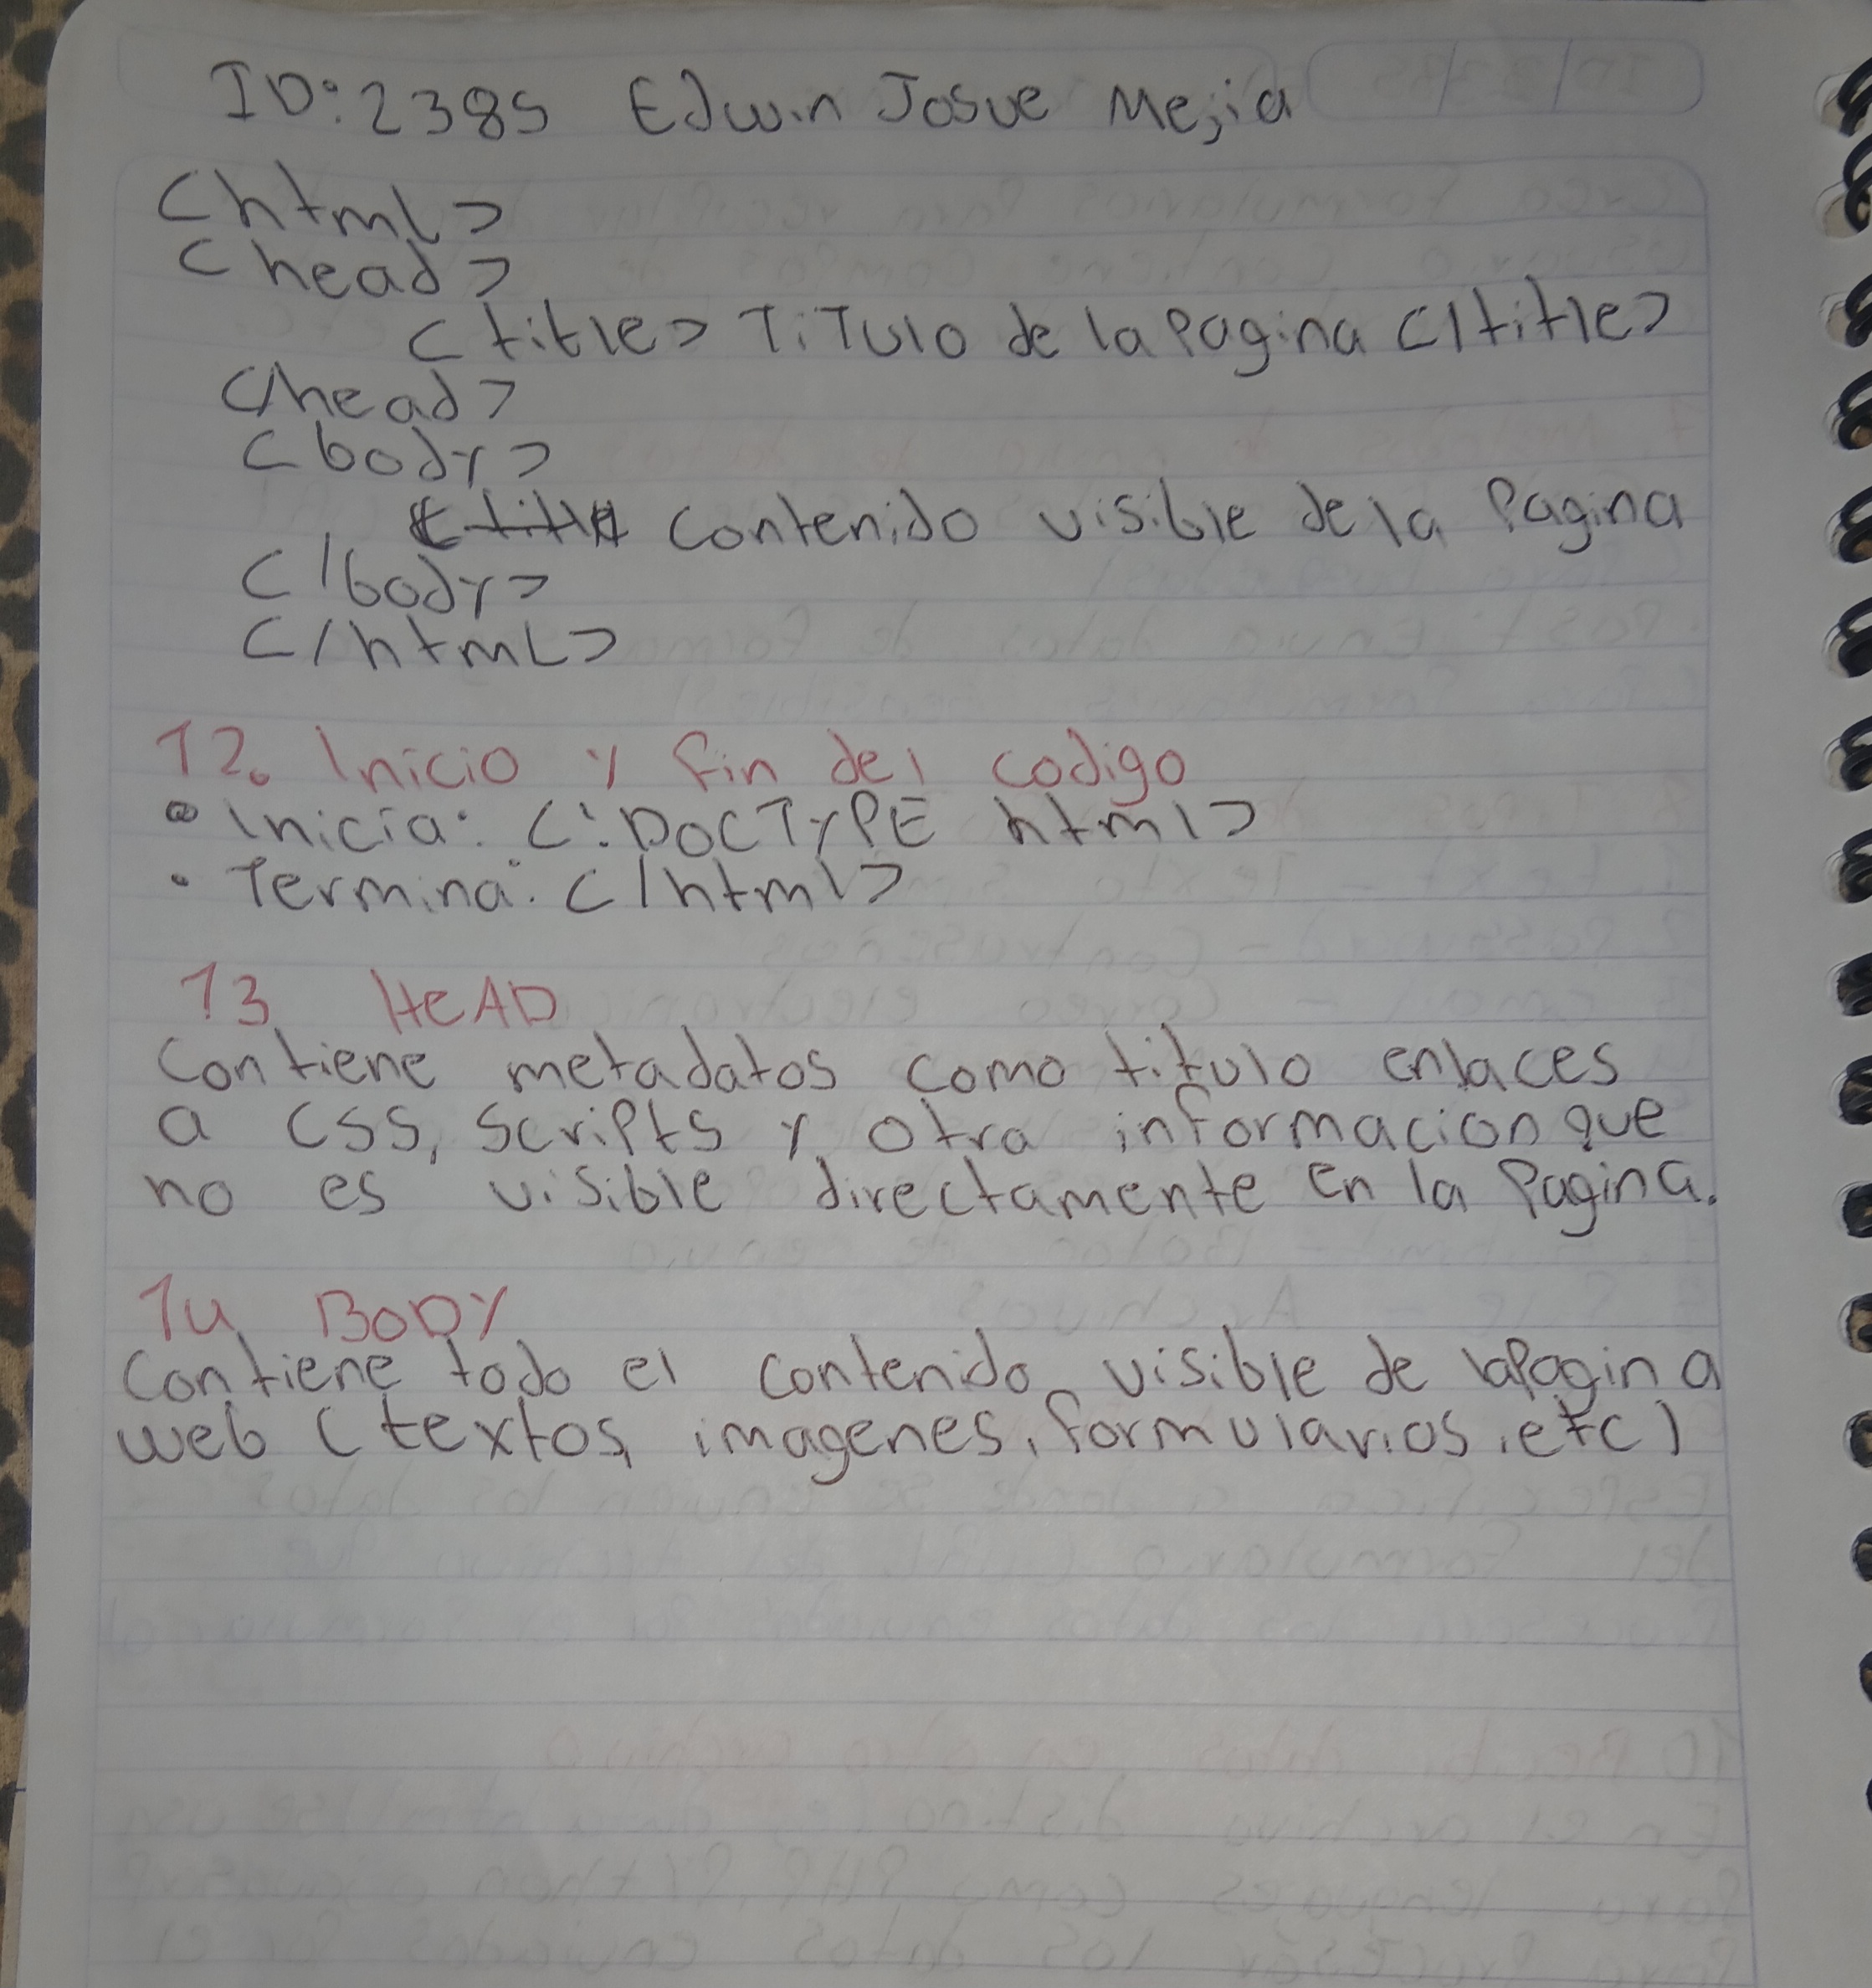 ID: 2385 Edwin Josue Mejia
<html>
<head>
<title> TiTulo de la Pagina </title>
</head>
<body>
contenido visible de la Pagina
</body>
</html>
12. Inicio y fin del codigo
• Inicia: <!DOCTYPE html>
• Termina: </html>
13 HeAD
Contiene metadatos como titulo enlaces
a CSS, Scripts y otra informacion que
no es visible directamente en la Pagina.
14 BODY
Contiene todo el contenido visible de la Pagina
web (textos, imagenes, formularios, etc)